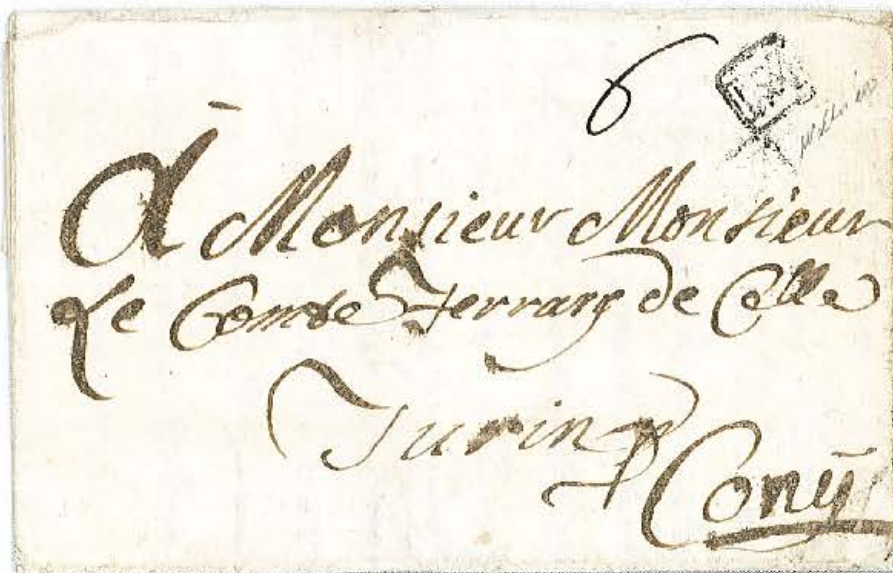 6
À Monsieur Monsieur
Le Comte Ferrary de Celle
Turin p
Conÿ